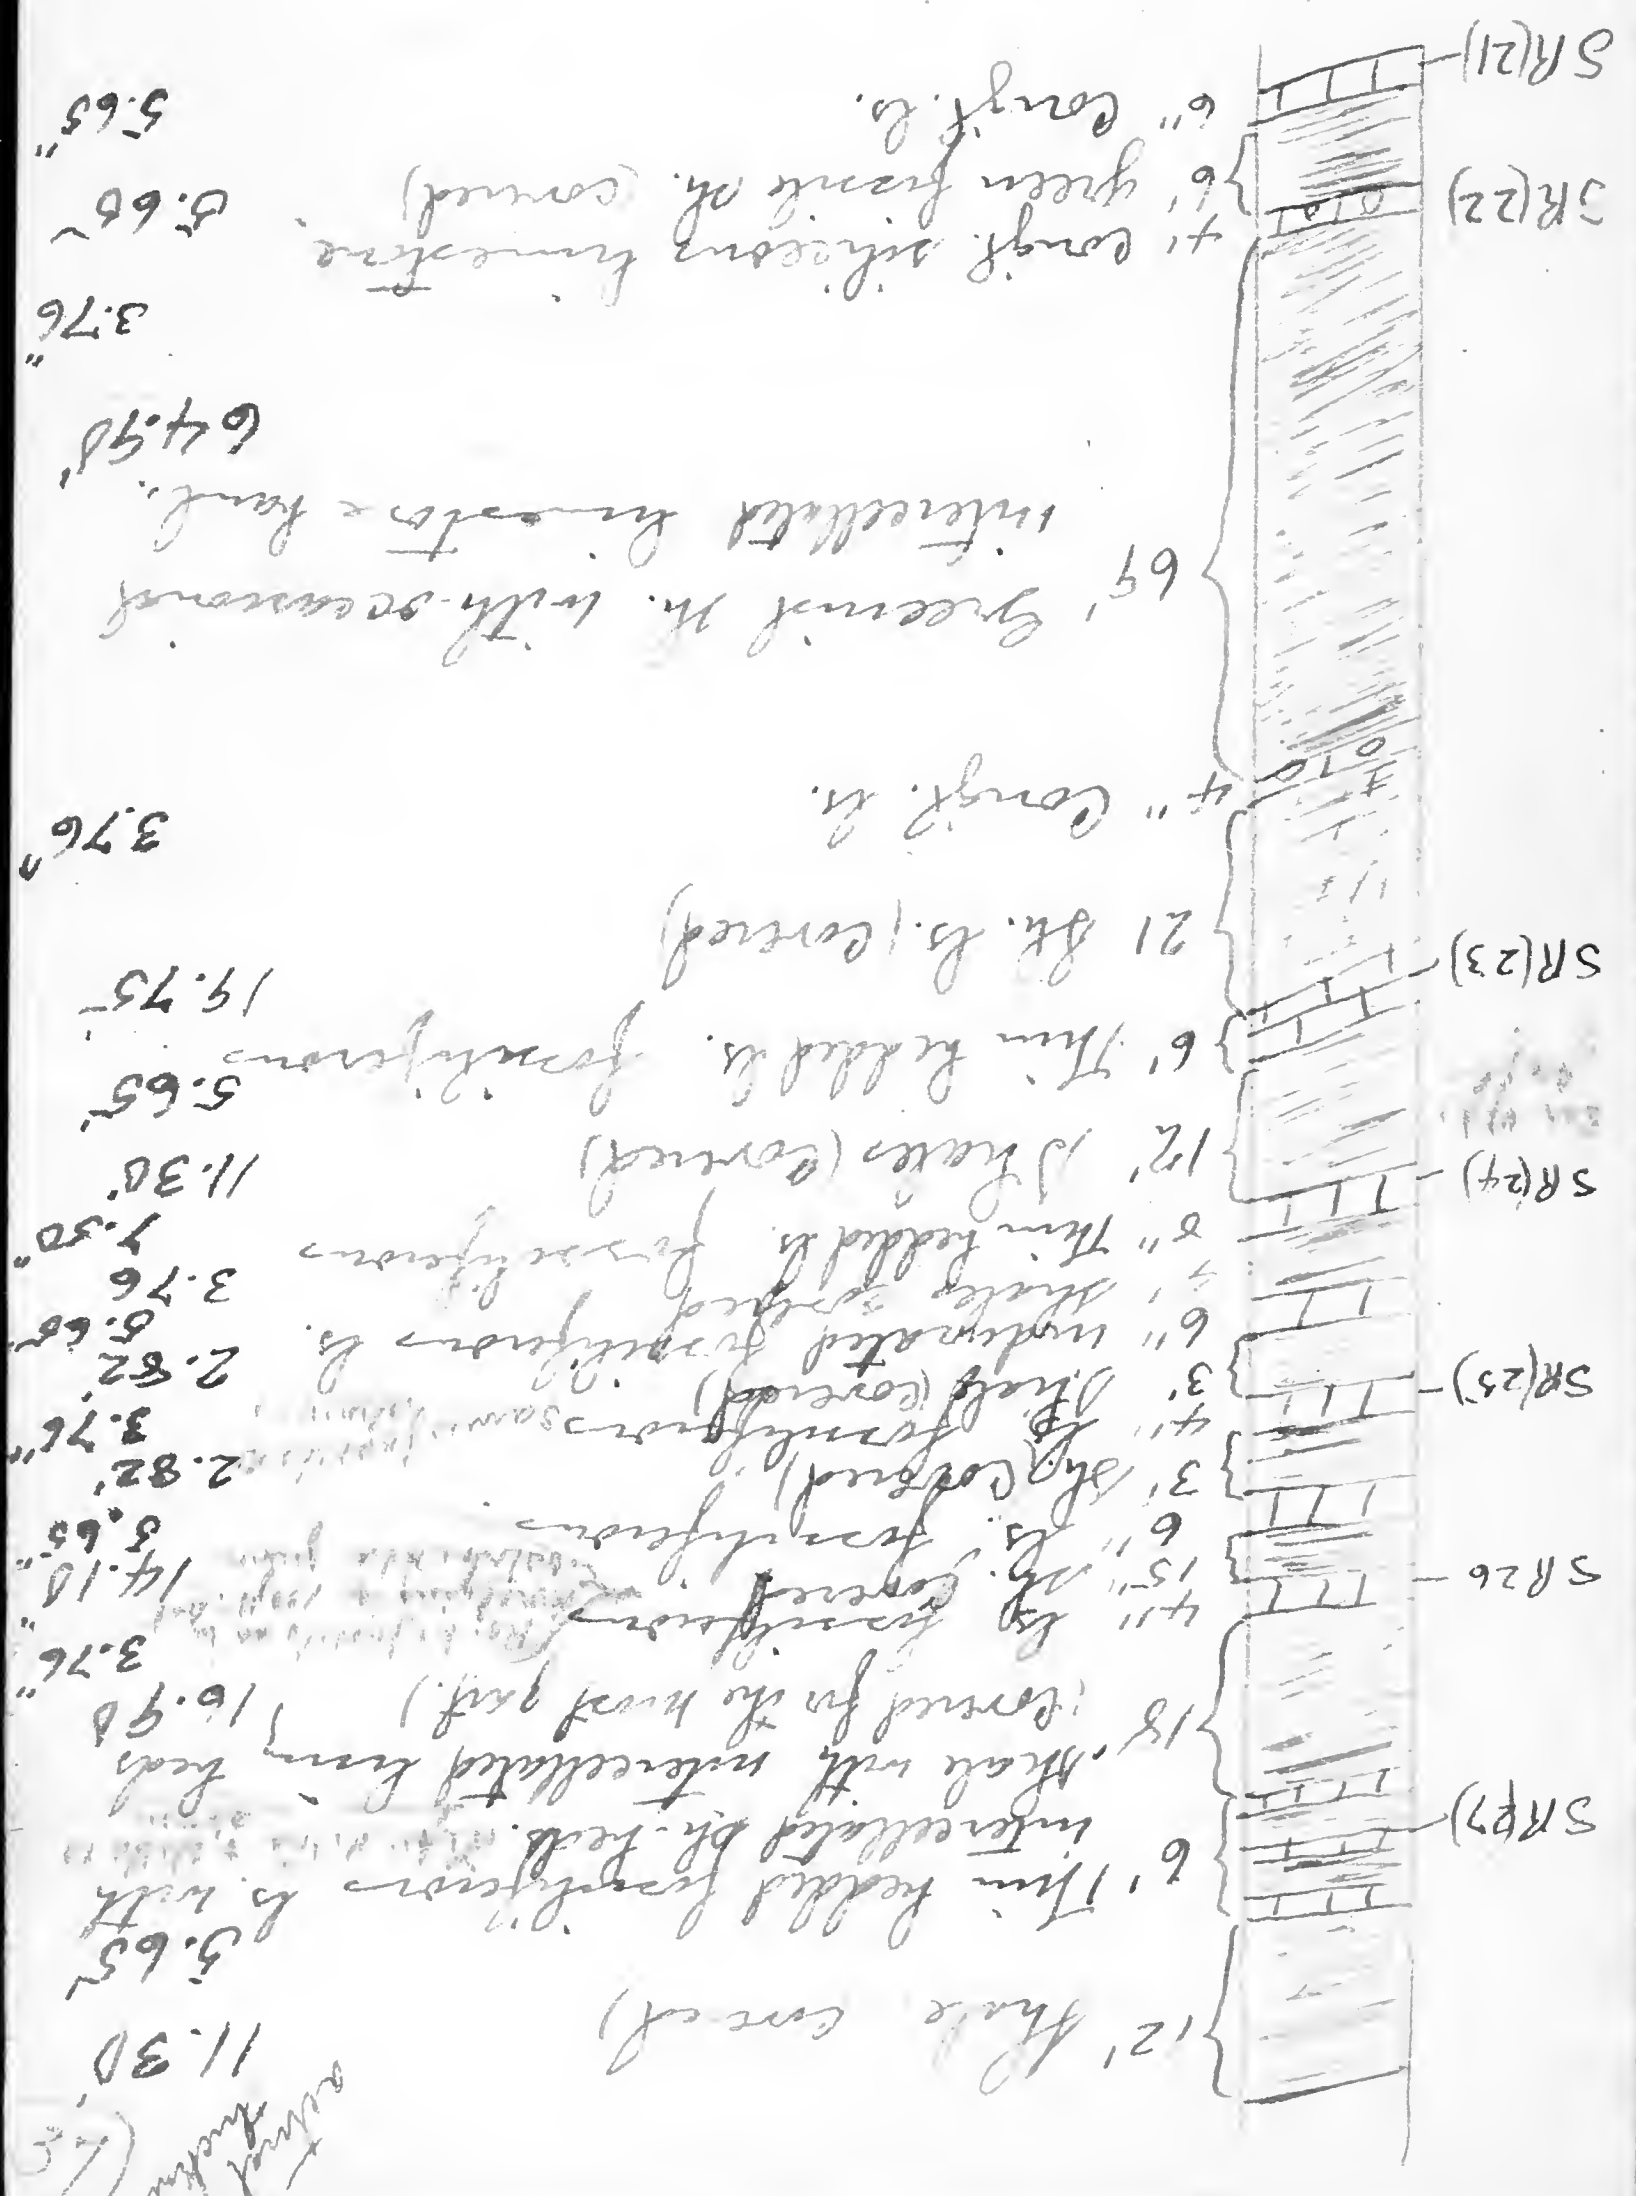 actual
thickness
12' Shale covered) 11.30'
6' Thin bedded fossiliferous ls. with 5.65'
SR(27) intercellated sh. beds.
18' Shale with intercellated limy beds
(Covered for the most part.) 16.90
4" ls fossiliferous 3.76"
SR26 15" sh. Covered 14.10"
6" ls. fossiliferous 5.65"
3' sh. (Covered) 2.82'
4" ls fossiliferous 3.76"
SR(25) 3' Shale (covered) 2.82'
6" indurated fossiliferous ls. 5.65"
4' shales covered 3.76
8" Thin bedded ls. fossiliferous 7.50"
SR(24) 12' Shales (Covered) 11.30'
6' Thin bedded ls. fossiliferous 5.65'
SR(23) 21 Sh. ls. (Covered) 19.75'
4" Congl. ls. 3.76"
69' Greenish sh. with occasional
intercellated limestone band. 64.90'
4" Congl. siliceous limestone 3.76"
SR(22) 6' green fissile sh. (covered) 5.65
6" Congl. ls. 5.65"
SR(21)